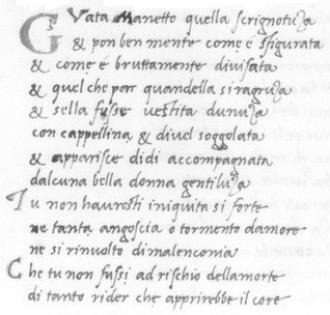 Guata Manetto quella scrignotuza
& pon ben mente come é sfigurata
& come é bruttamente divisata
& quel che par quandella si ragruza
& sella fusse vestita dunuza
con cappellina & divel soggolata
& apparisce didi accompagnata
dalcuna bella donna gentiluza
Tu non havresti iniquita si forte
ne tanta angoscia o tormento damore
ne si rinvolto dimalenconia
Che tu non fussi ad rischio dellamorte
di tanto rider che apprirebbe il core